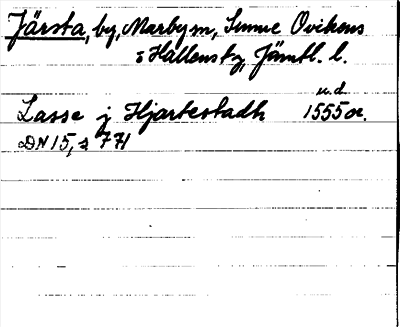 Järsta, by, Marby m, Sunne Ovikens
o Hallens tg, Jämtl. l.
u.d
Lasse j Hjartestadh 1555 or.
DN 15, s 771